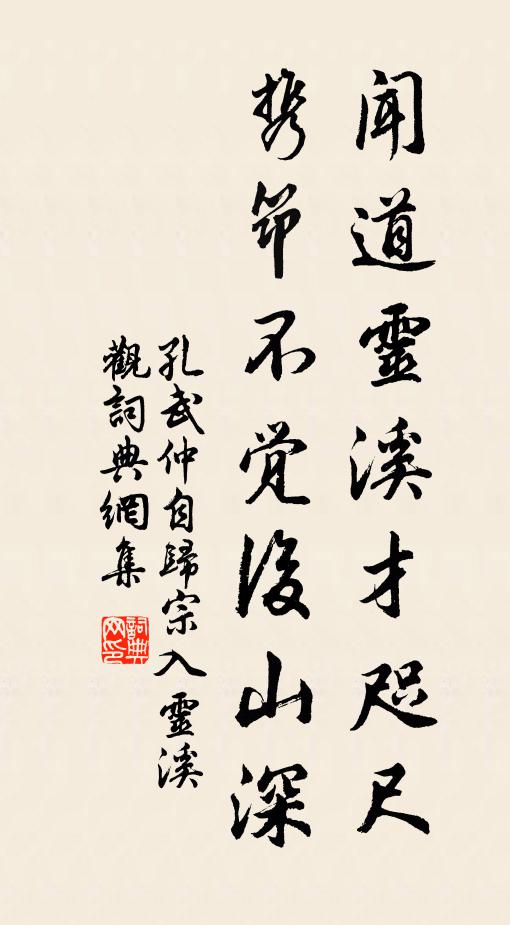 闻道靈溪才咫尺
携筇不覚後山深
孔武仲自歸宗入靈溪
觀詞典網集
詞典
网印